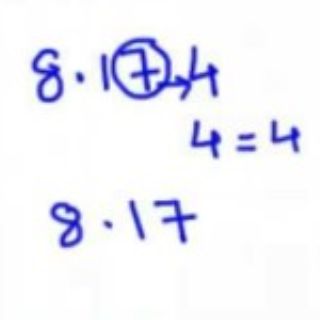 8.17→4
4=4
8.17